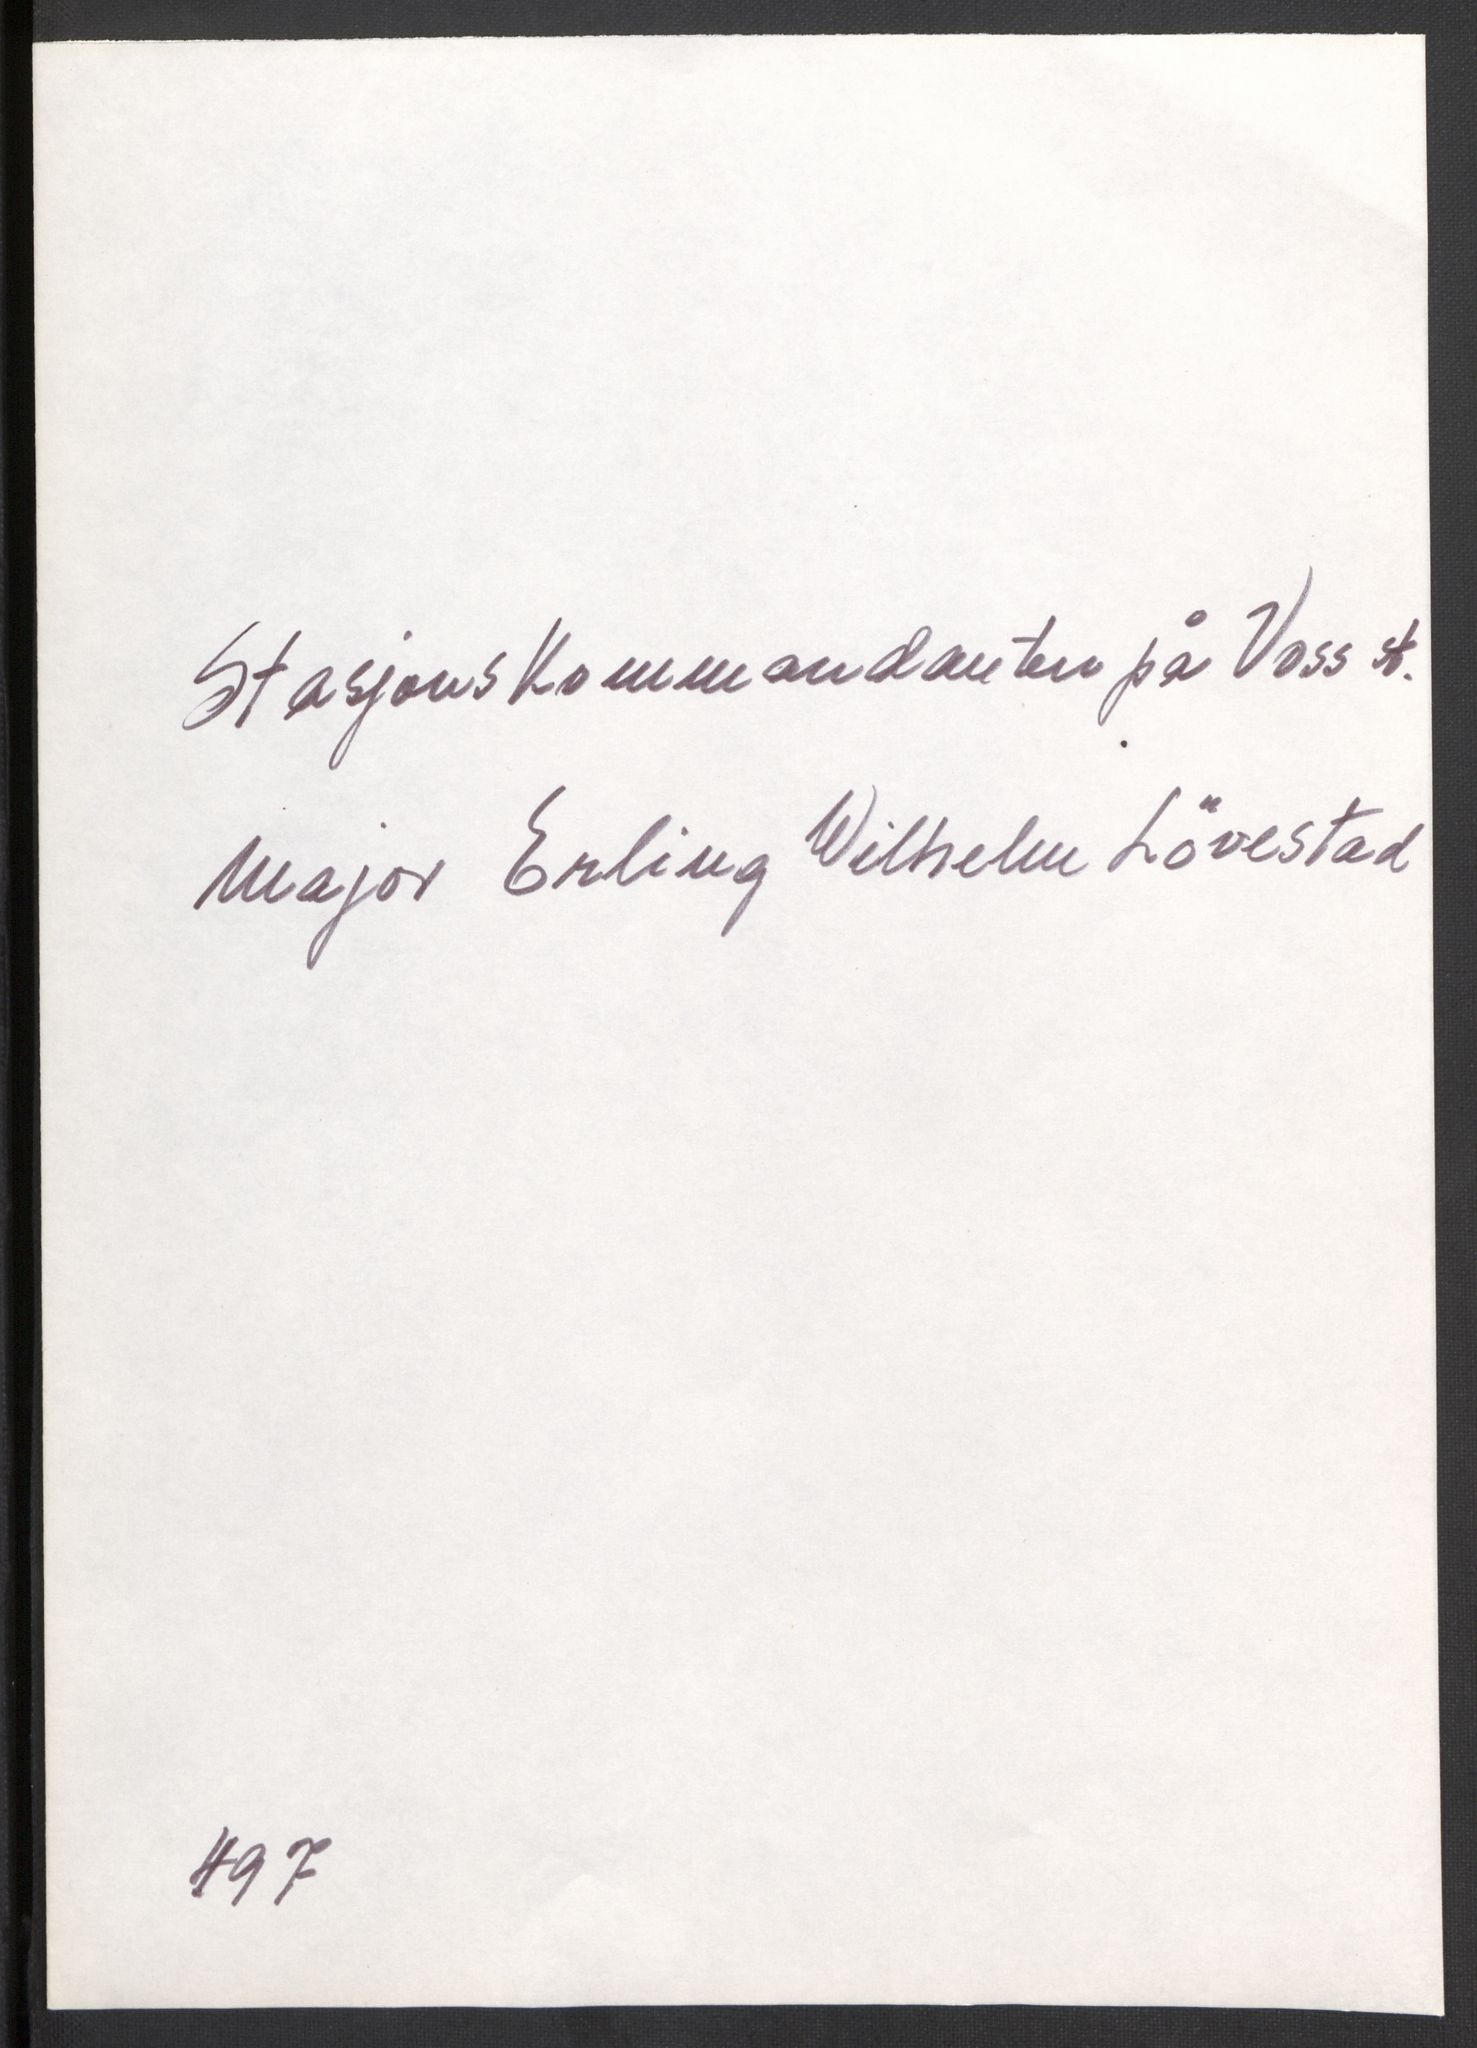 Stasjonskommandanten på Voss st.
Major Erling Wilhelm Lövestad
497